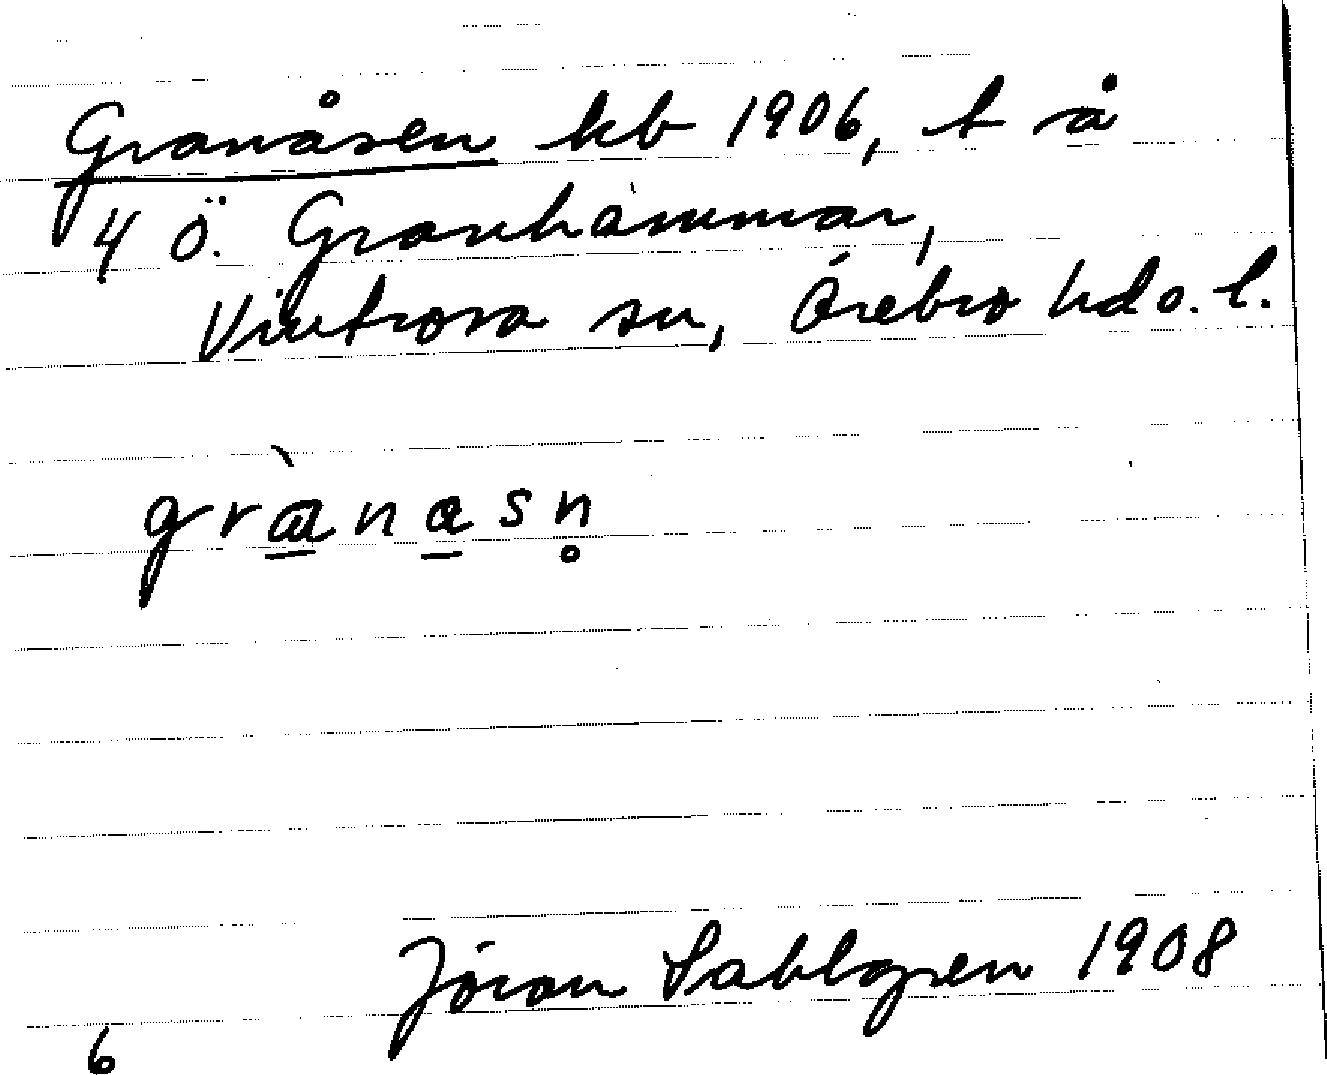 Granåsen kb 1906, t å
4 Ö. Granhammar,
Vintrosa sn, Örebro hd ö. l.
grànasn̥
Jöran Sahlgren 1908
6